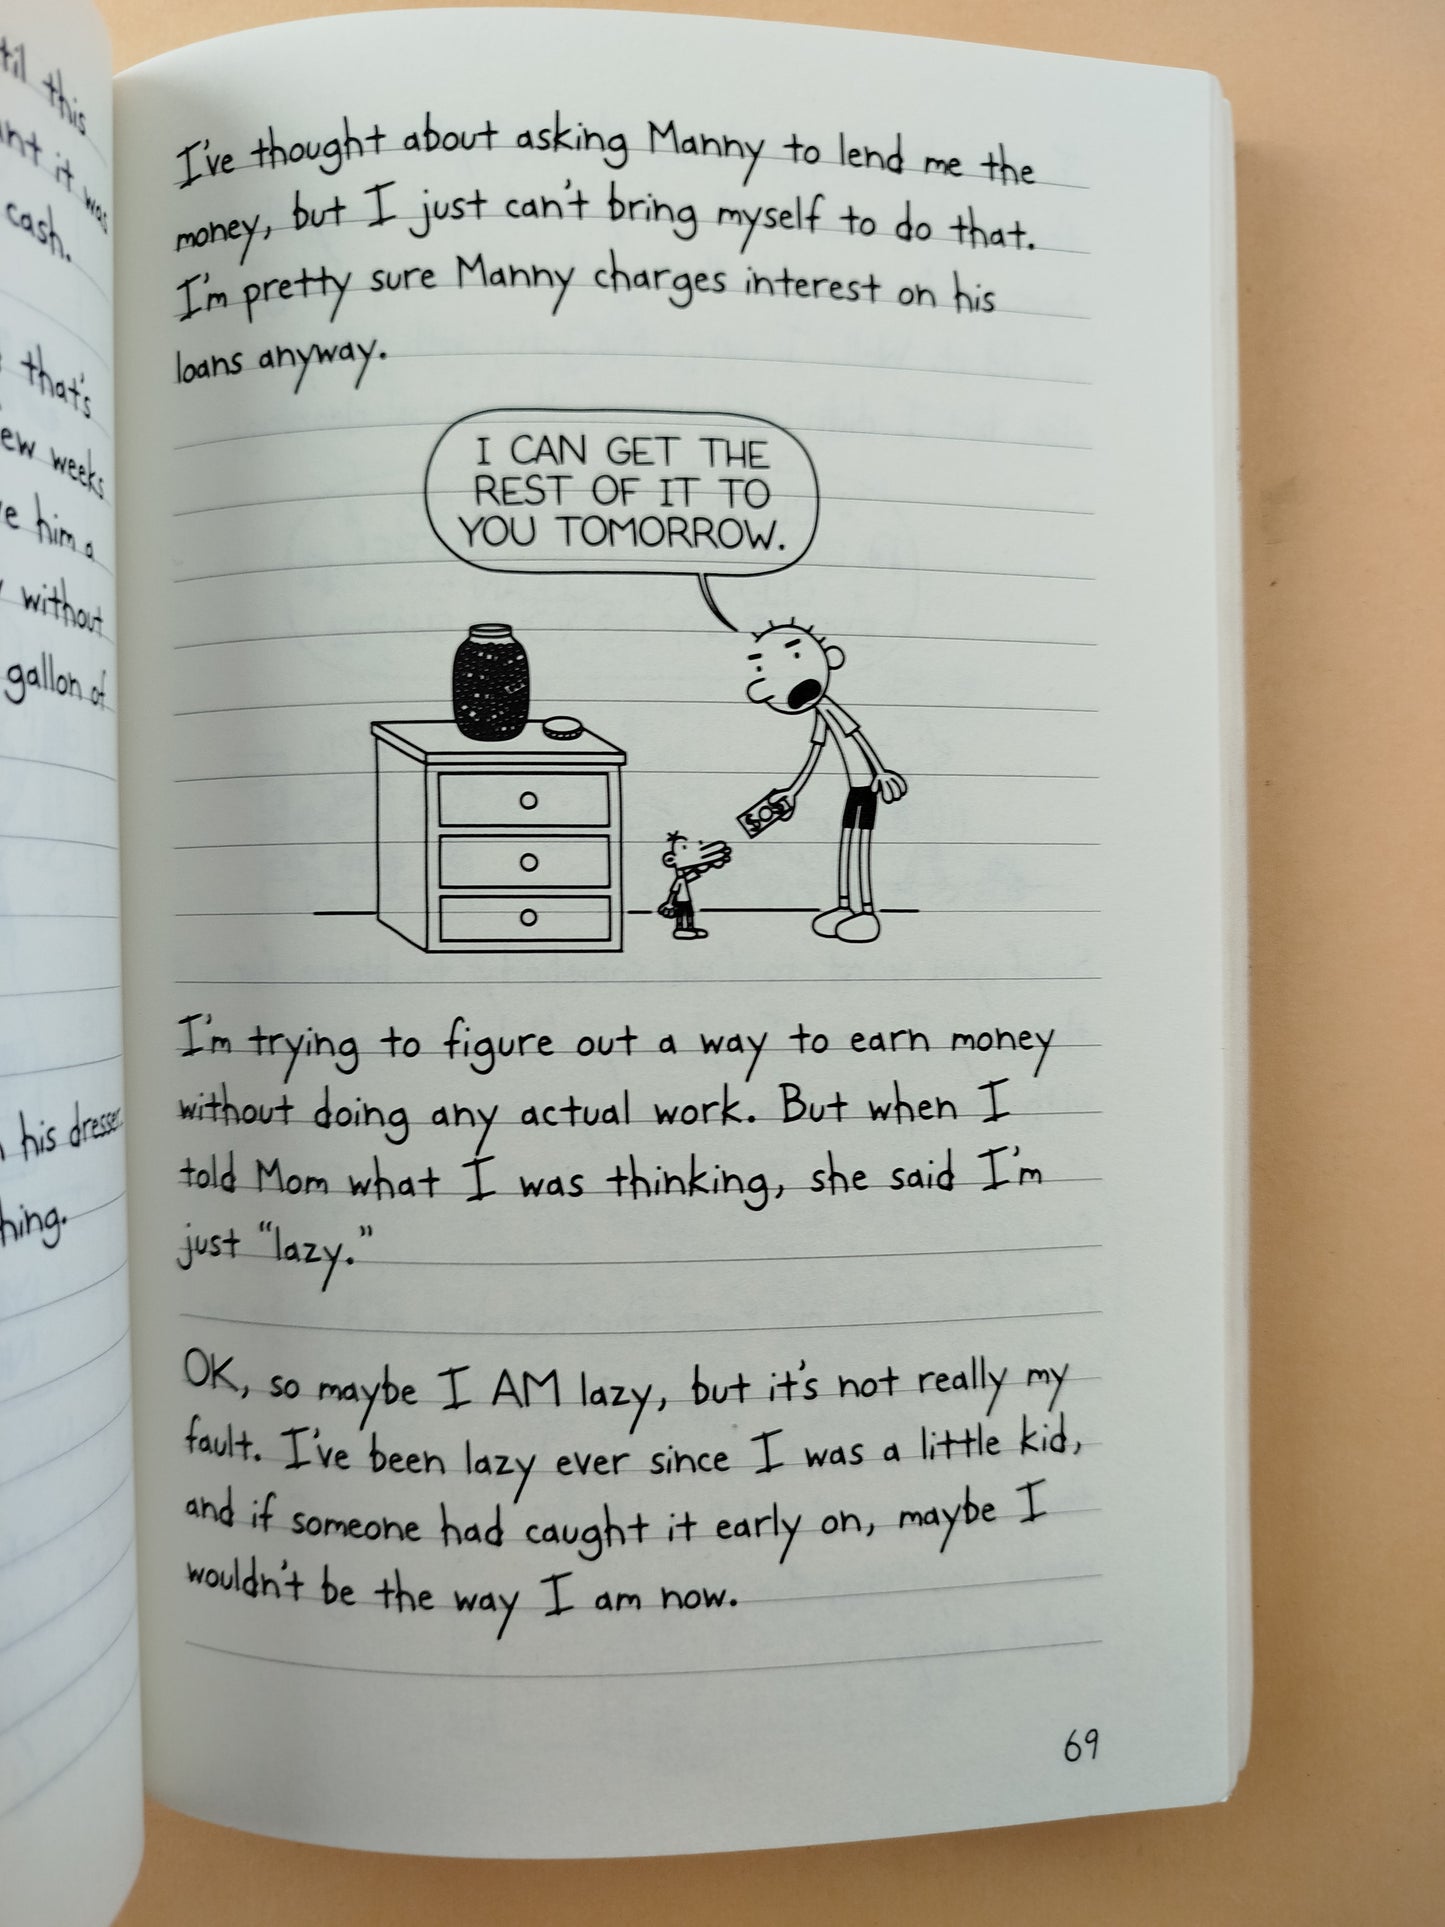 til this
it was
cash.
that's
ew weeks
him a
without
gallon of
his dresser
hing.
I've thought about asking Manny to lend me the
money, but I just can't bring myself to do that.
I'm pretty sure Manny charges interest on his
loans anyway.
I CAN GET THE
REST OF IT TO
YOU TOMORROW.
$
I'm trying to figure out a way to earn money
without doing any actual work. But when I
told Mom what I was thinking, she said I'm
just "lazy."
OK, so maybe I AM lazy, but it's not really my
fault. I've been lazy ever since I was a little kid,
and if someone had caught it early on, maybe I
wouldn't be the way I am now.
69